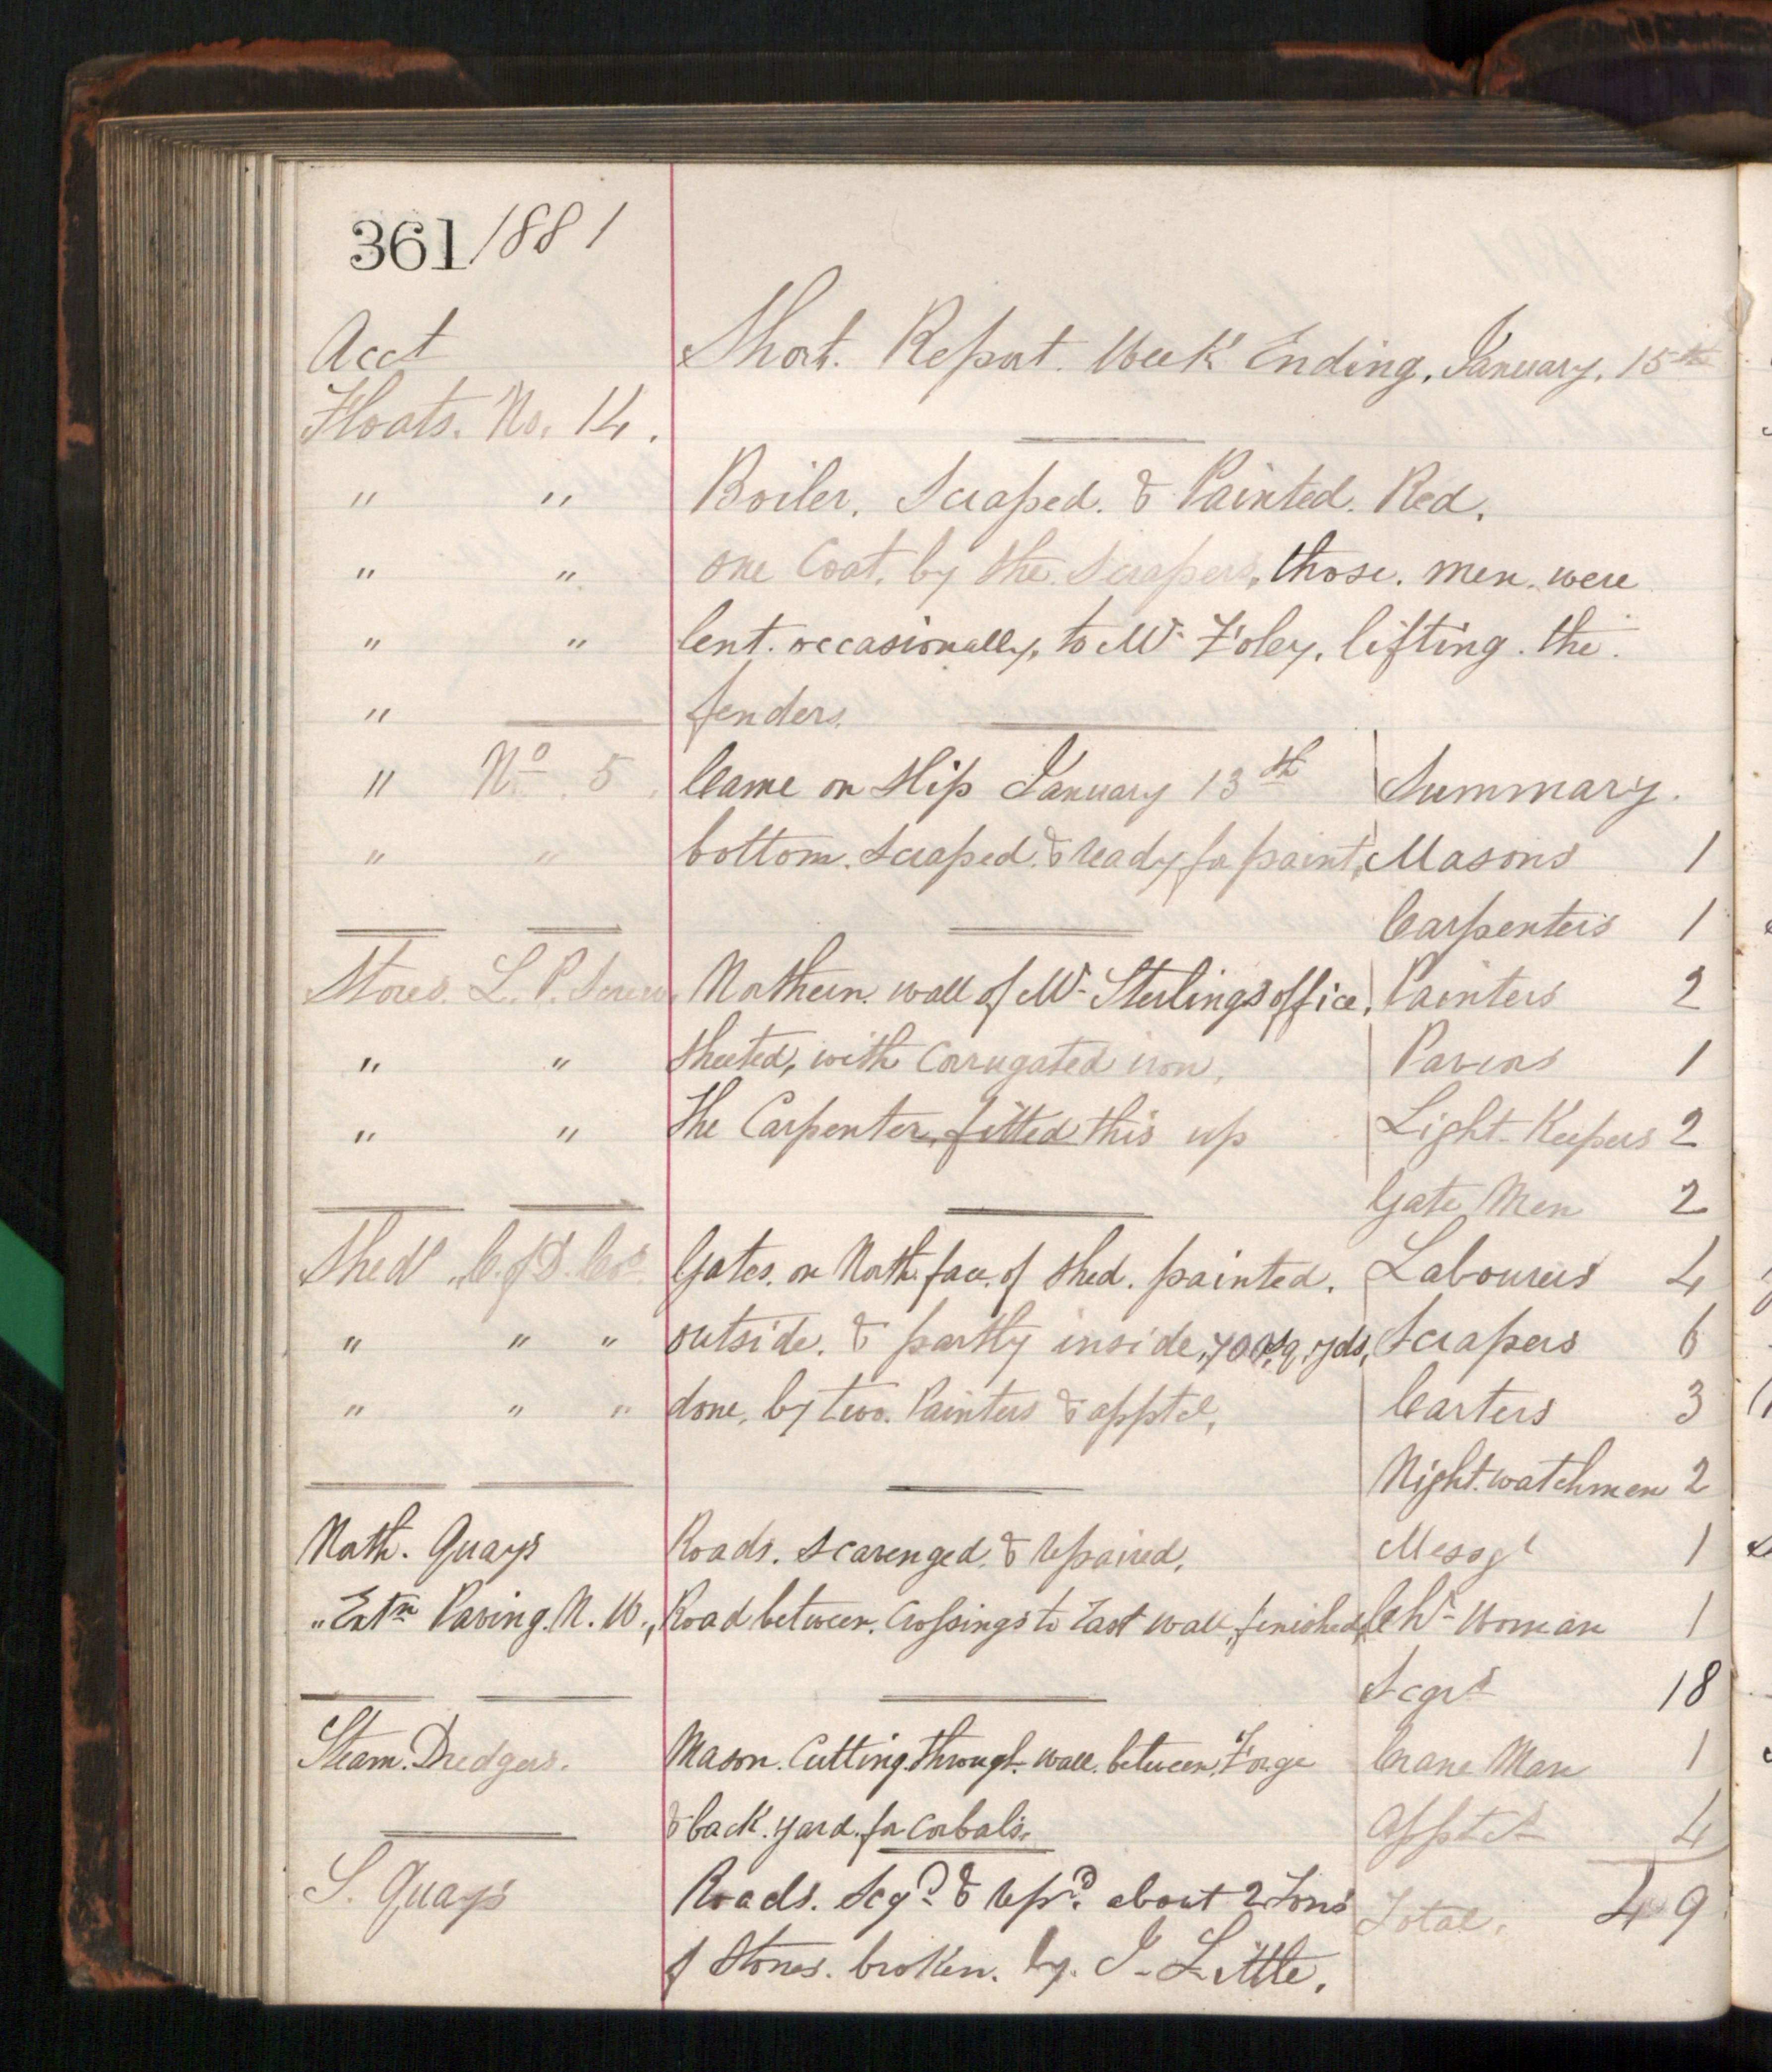 361/1881
Acct Short. Report. Week Ending, January. 15th
Floats. No. 14.
" " Boiler. Scraped. & Painted. Red.
" " one Coat. by the Scrapers, those. men. were
" " lent. occasionally, to Mr. Foley, lifting. the.
" fenders.
" No. 5. Came on Slip January 13th Summary.
" " bottom. Scraped. & ready for paint, Masons 1
Carpenters 1
Stores. L. P. Northern. wall of Mr. Sterlings office, Painters 2
" " Sheeted, with Corrugated iron, Paviors 1
" " The Carpenter, fitted this up Light-Keepers 2
Gate Men 2
Shed Gates. on North. face. of Shed. painted. Labourers 4
" " " outside. & partly inside, 700 sq. yds, Scrapers 6
" " " done, by two. Painters & appter, Carters 3
Night.watchmen 2
North. Quays Roads. Scavenged. & repaired. Messgr 1
" Extn Paving. N. W., Road between. Crossings to East Wall, finished, Chr- Woman 1
Scgrs 18
Steam. Dredgers. Mason. Cutting. through. wall. between. Forge Crane Man 1
& back. yard. for Corbals. Appter 4
S. Quays Roads. Scgd. & repd. about 2 Tons Total. 49
of Stones. broken. by. J- Little.